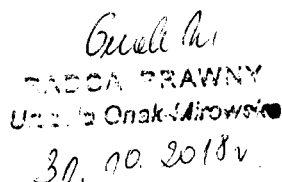 RADCA PRAWNY
Urszula Onak-Mirowska
30. 10. 2018 r